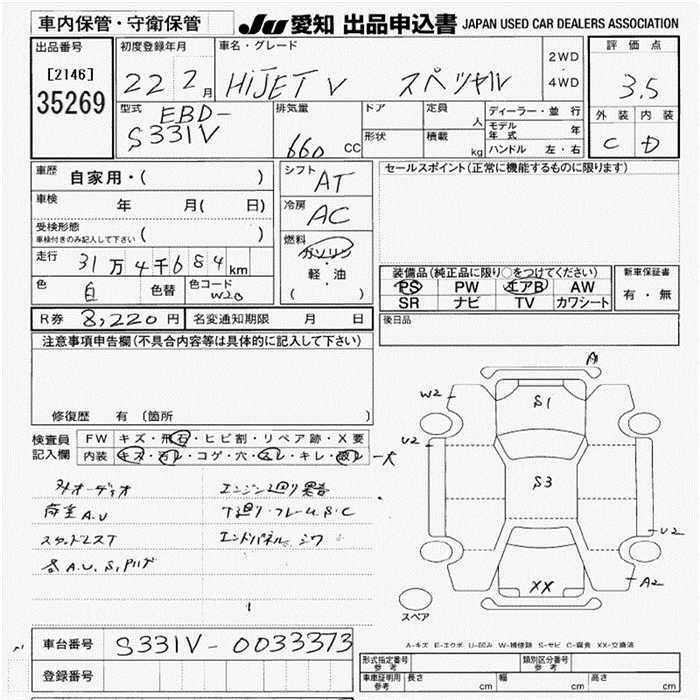 車内保管・守衛保管 JU 愛知 出品申込書 JAPAN USED CAR DEALERS ASSOCIATION
出品番号 [2146] 35269
初度登録年月 22 2月
車名・グレード HiJET V スペシャル
2WD・4WD
評価点 3.5
外装 内装
C D
型式 EBD-S331V
排気量 660 CC
ドア 形状
定員 人
積載 kg
ディーラー・並行
モデル年式 年
ハンドル 左・右
車歴 自家用・( )
車検 年 月( 日)
受検形態 車検付きのみ記入して下さい ( )
走行 31万4千684km
色 白 色替 色コード W20
シフト AT
冷房 AC
燃料 ガソリン・軽・油 ( )
セールスポイント(正常に機能するものに限ります)
装備品(純正品に限り○をつけてください)
PS PW エアB AW
SR ナビ TV カワシート
新車保証書 有・無
R券 8,220円 名変通知期限 月 日
後日品
注意事項申告欄(不具合内容等は具体的に記入して下さい)
修復歴 有 〔箇所 〕
検査員記入欄
FW キズ・飛石・ヒビ割・リペア跡・X要
内装 キズ・コゲ・穴・キレ・大
オーディオ エンジン廻り異音
荷室A.U 下廻り・フレームS.C
スタッドレスT エンドパネル シワ
各A.U.S.
A1
W2
S1
U2
S3
U2
XX
A2
スペア
A-キズ E-エクボ U-凹み W-補修跡 S-サビ C-腐食 XX-交換済
車台番号 S331V-0033373
登録番号
形式指定番号 参考 類別区分番号 参考
車庫証明用 参考 長さ cm 幅 cm 高さ cm